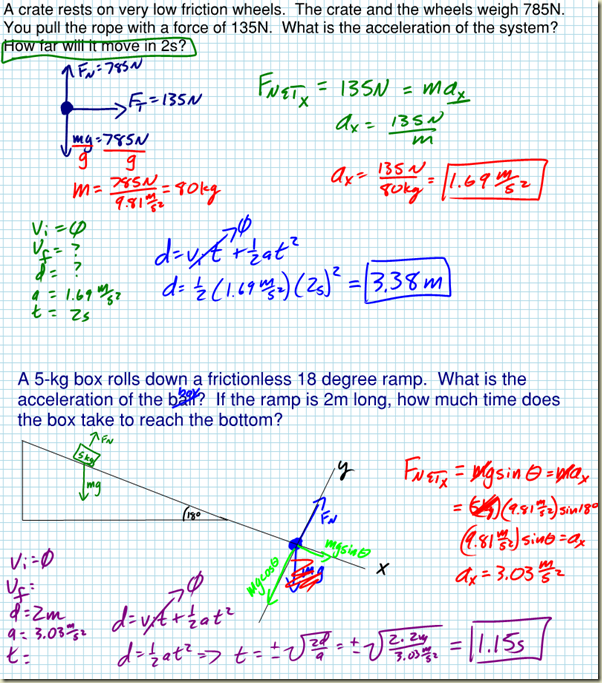 A crate rests on very low friction wheels. The crate and the wheels weigh 785N.
You pull the rope with a force of 135N. What is the acceleration of the system?
How far will it move in 2s?
F_N = 785N
F_T = 135N
mg = 785N
g g
m = 785N / 9.81 m/s² = 80kg
F_NETx = 135N = ma_x
a_x = 135N / m
a_x = 135N / 80kg = 1.69 m/s²
V_i = Ø
V_f = ?
d = ?
a = 1.69 m/s²
t = 2s
d = v_i t + ½at² Ø
d = ½(1.69 m/s²)(2s)² = 3.38m
A 5-kg box rolls down a frictionless 18 degree ramp. What is the
acceleration of the ball? box If the ramp is 2m long, how much time does
the box take to reach the bottom?
F_N
5kg
mg
18°
y
F_N
mg sinθ
mg cosθ
mg
x
F_NETx = mg sinθ = ma_x
= (5kg)(9.81 m/s²) sin18°
(9.81 m/s²) sinθ = a_x
a_x = 3.03 m/s²
V_i = Ø
V_f =
d = 2m
a = 3.03 m/s²
t =
d = v_i t + ½at² Ø
d = ½at² => t = ±√(2d/a) = ±√(2·2m / 3.03 m/s²) = 1.15s